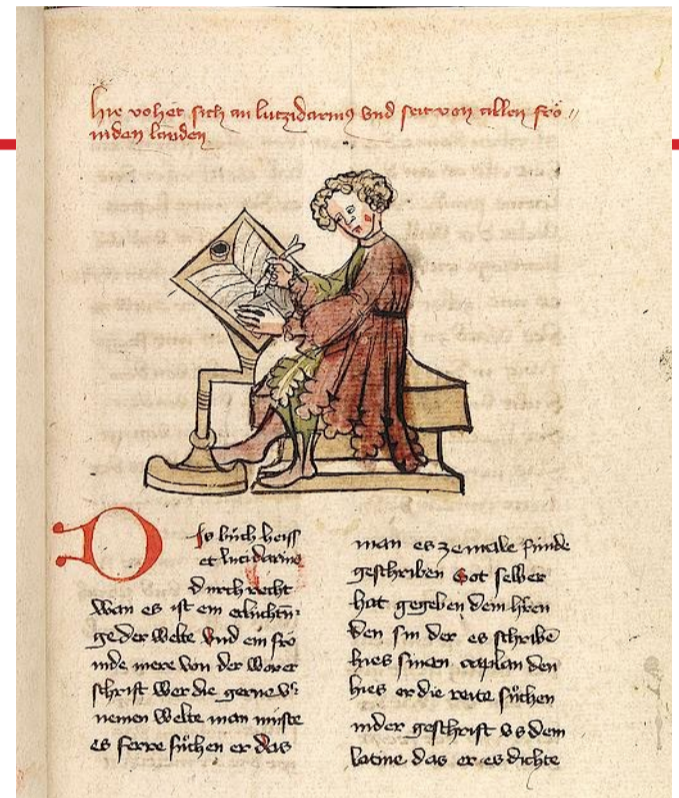 Hie vohet sich an lutzidarius vnd seit von allen frö //
mden landen
Dis bůch heiss
et lucidarius
durch recht
wan es ist ein erluchtu͂
ge der welte vnd ein frö
mde mere von der worer
schrift wer die gerne v'
nemen welte man müste
es ferre sůchen er das
man es zemale funde
geschriben Got selber
hat gegeben dem h'ren
den sin der es schribe͂
hies sinen caplan den
hies er die reite sůchen
in der geschrift vs dem
latine das er es dichte